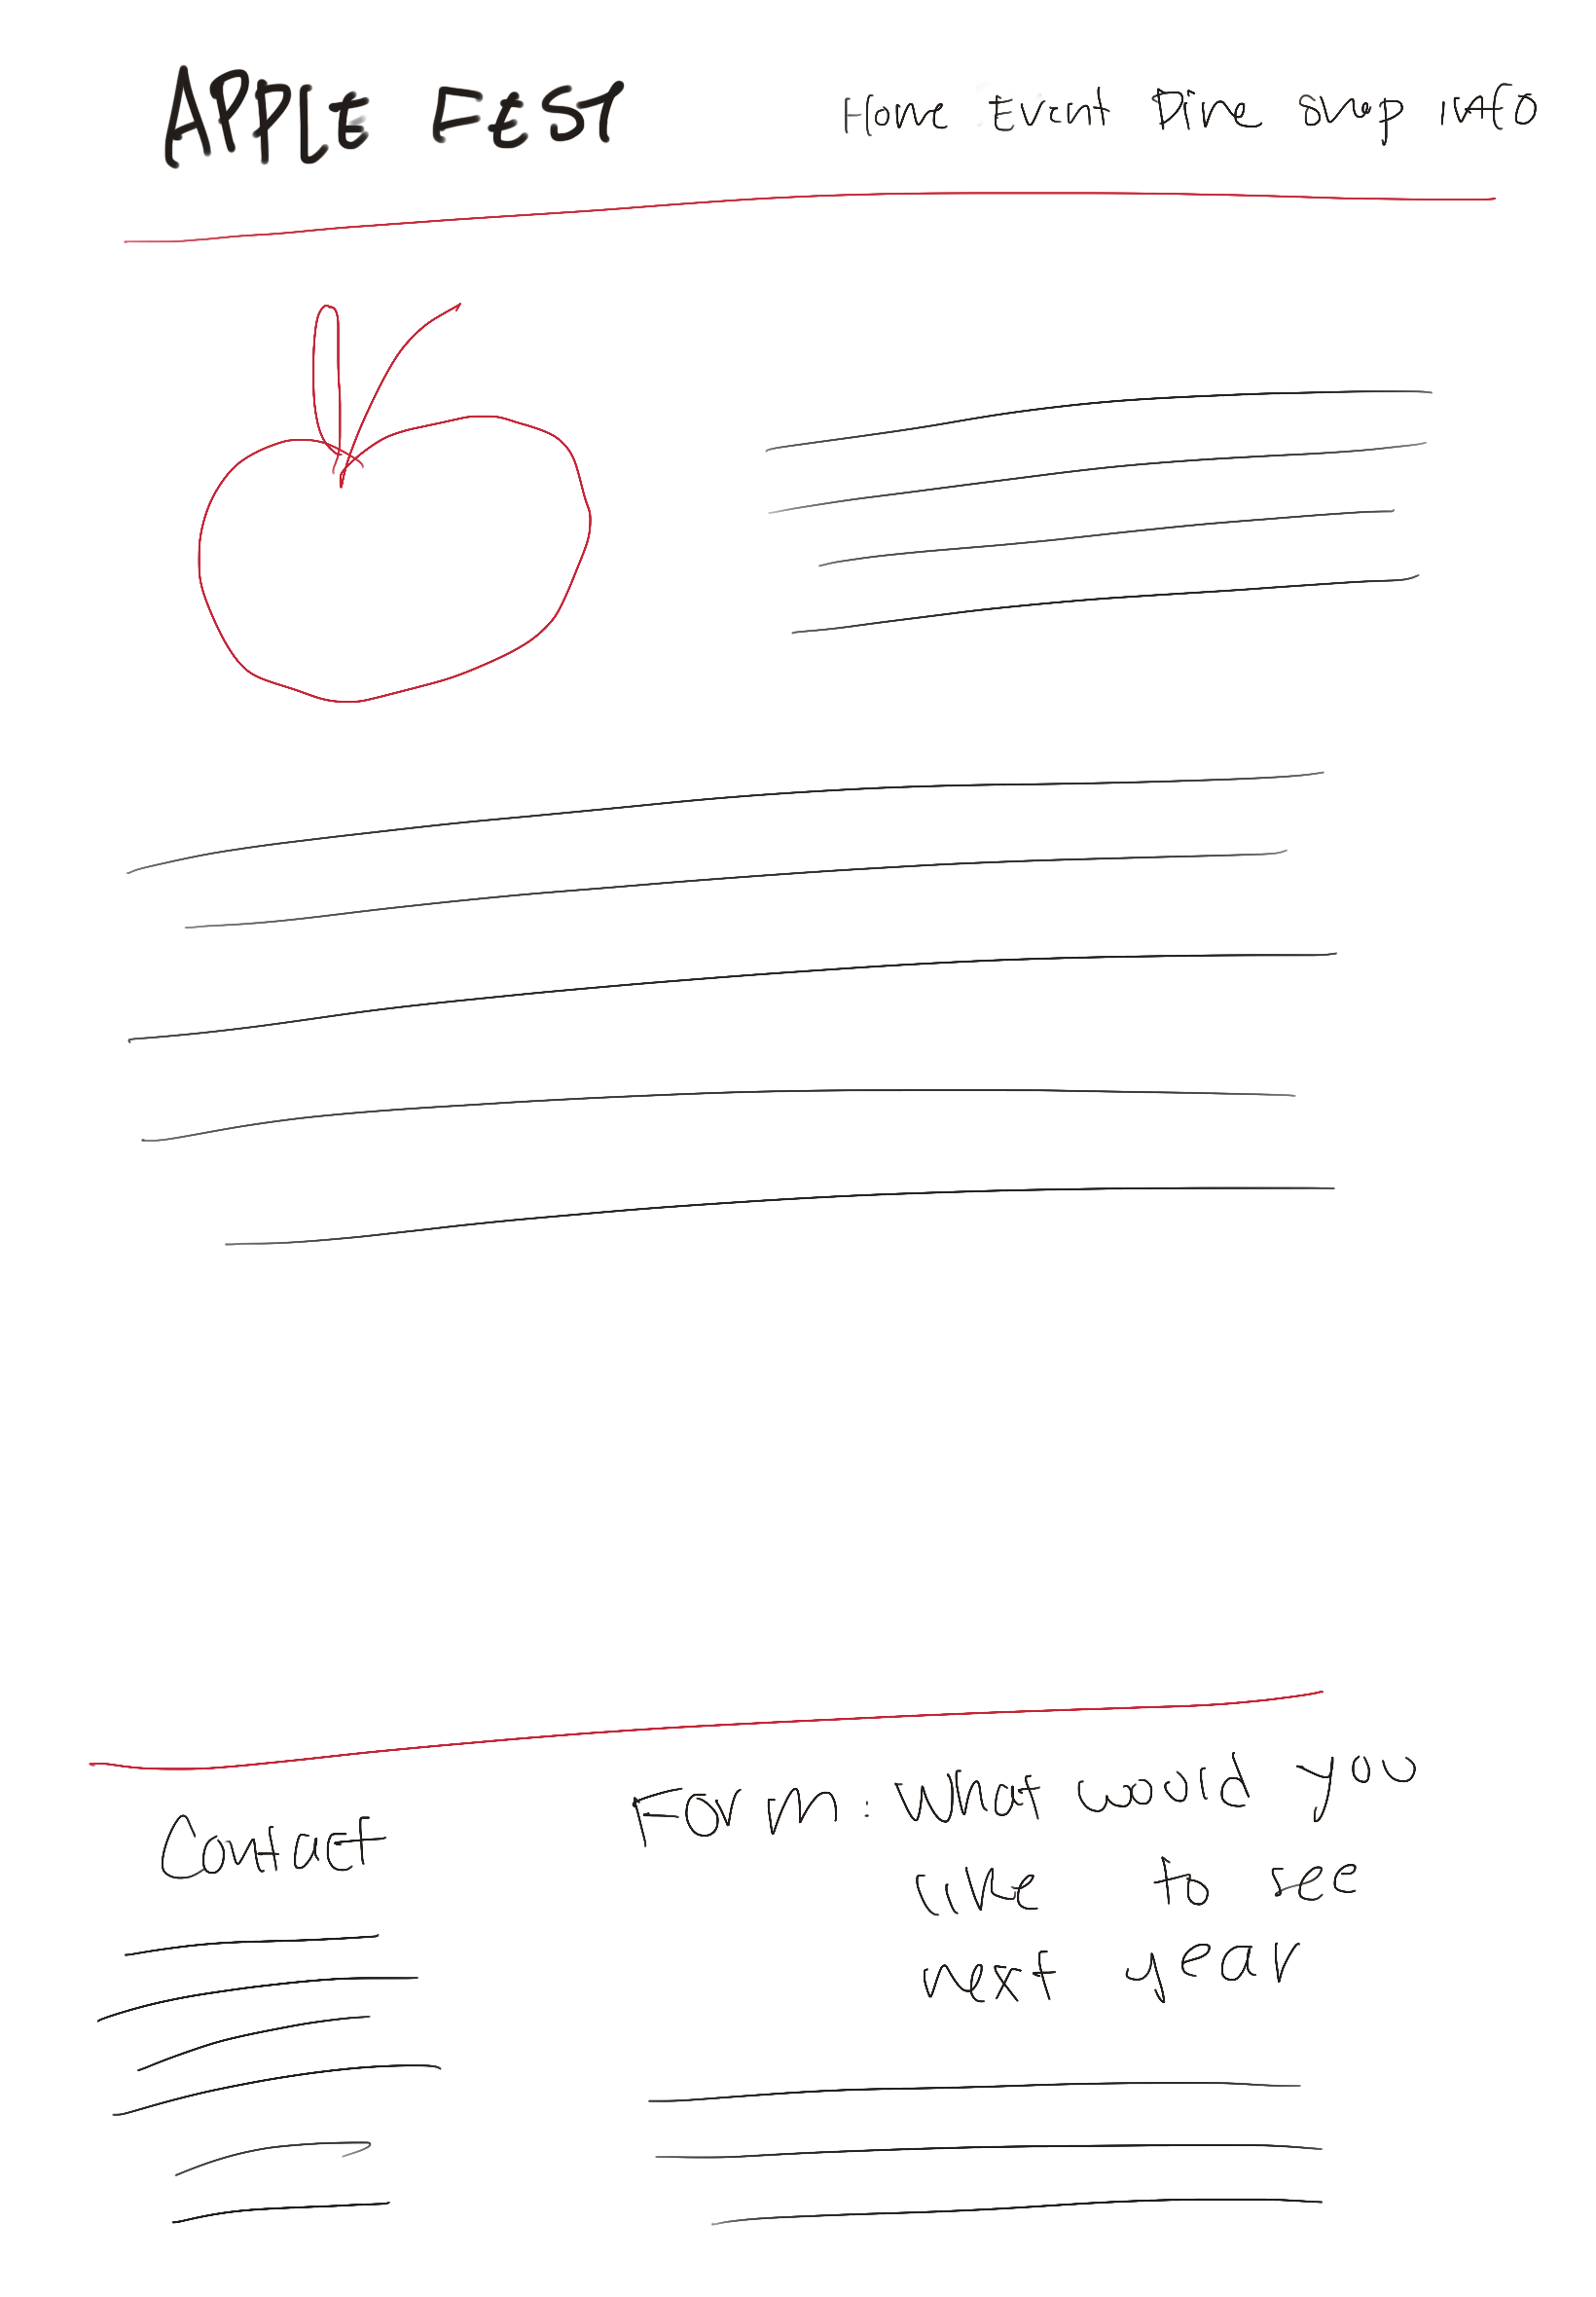 APPLE FEST
Home Event Dine Shop INFO
Contact
Form: What would you
like to see
next year